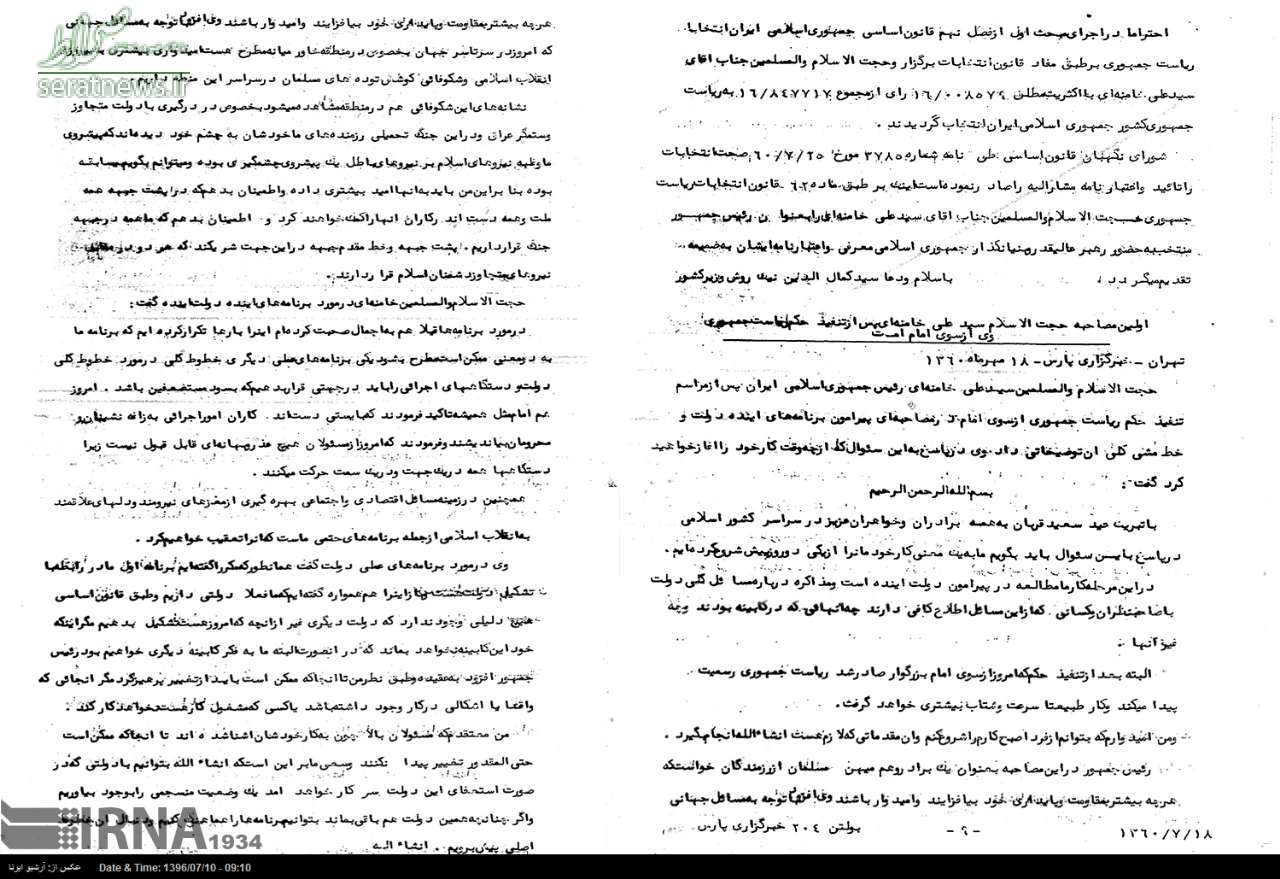 احتراما در اجرای مبحث اول از فصل نهم قانون اساسی جمهوری اسلامی ایران انتخابات
ریاست جمهوری بر طبق مفاد قانون انتخابات برگزار و حجت الاسلام والمسلمین جناب اقای
سید علی خامنه‌ای با اکثریت مطلق ۱۶/۰۰۸۵۷۹ رای از مجموع ۱۶/۸۴۷۷۱۷ به ریاست
جمهوری کشور جمهوری اسلامی ایران انتخاب گردیدند .
شورای نگهبان قانون اساسی طی نامه شماره ۳۷۸۵ مورخ ۶۰/۷/۱۵ صحت انتخابات
را تائید و اعتبار نامه مشارالیه را صادر نموده است اینک بر طبق ماده ۶۲ قانون انتخابات ریاست
جمهوری حجت الاسلام والمسلمین جناب اقای سید علی خامنه‌ای را بعنوان رئیس جمهور
منتخب به حضور رهبر عالیقدر و بنیانگذار جمهوری اسلامی معرفی و اعتبار نامه ایشان به ضمیمه
تقدیم میگردد . با سلام و دعا سید کمال الدین نیک روش وزیر کشور
اولین مصاحبه حجت الاسلام سید علی خامنه‌ای پس از تنفیذ حکم ریاست جمهوری
وی از سوی امام امت
تهران - خبرگزاری پارس - ۱۸ مهرماه ۱۳۶۰
حجت الاسلام والمسلمین سید علی خامنه‌ای رئیس جمهوری اسلامی ایران پس از مراسم
تنفیذ حکم ریاست جمهوری از سوی امام در مصاحبه‌ای پیرامون برنامه‌های اینده دولت و
خط مشی کلی ان توضیحاتی داد . وی در پاسخ به این سئوال که از چه وقت کار خود را اغاز خواهید
کرد گفت :
بسم الله الرحمن الرحیم
با تبریک عید سعید قربان به همه برادران و خواهران عزیز در سراسر کشور اسلامی
در پاسخ با این سئوال باید بگویم ما به یک معنی کار خود مانرا از یکی دو روز پیش شروع کرده‌ایم .
در این مرحله کار ما مطالعه در پیرامون دولت اینده است و مذاکره درباره مسائل کلی دولت
با صاحبنظران و کسانی که از این مسائل اطلاع کافی دارند چه انهائی که در کابینه بودند و چه
غیر آنها .
البته بعد از تنفیذ حکم که امروز از سوی امام بزرگوار صادر شد ریاست جمهوری رسمیت
پیدا میکند و کار طبیعتا سرعت و شتاب بیشتری خواهد گرفت .
و من امیدوارم که بتوانم از فردا صبح کارم را شروع کنم وان مقدماتی که لازم هست انشاءالله انجام گیرد .
رئیس جمهور در این مصاحبه بعنوان یک برادر و هم میهن مسلمان از رزمندگان خواست که
هر چه بیشتر بمقاومت و پایداری خود بیافزایند و امیدوار باشند وی افزود با توجه به مسائل جهانی
۱۳۶۰/۷/۱۸ -۹- بولتن ۲۰۴ خبرگزاری پارس
هر چه بیشتر بمقاومت و پایداری خود بیافزایند و امیدوار باشند وی افزود با توجه به مسائل جهانی
که امروز در سرتاسر جهان بخصوص در منطقه خاور میانه مطرح هست امیدواری بیشتری به پیروزی
انقلاب اسلامی و شکوفائی کوشش توده‌های مسلمان در سراسر این منطقه داریم .
نشانه‌های این شکوفائی هم در منطقه مشاهده میشود بخصوص در درگیری با دولت متجاوز
و ستمگر عراق و در این جنگ تحمیلی رزمنده‌های ما خودشان به چشم خود دیده‌اند که پیشروی
ما و غلبه نیروهای اسلام بر نیروهای باطل یک پیشروی چشمگیری بوده و میتوانم بگویم بیسابقه
بوده بنا براین من باید به انها امید بیشتری داده و اطمینان بدهم که در پشت جبهه همه
ملت و همه دست اندرکاران انها را کمک خواهند کرد و اطمینان بدهم که ما همه در جبهه
جنگ قرار داریم . پشت جبهه و خط مقدم جبهه در این جهت شریکند که هر دو در مقابل
نیروهای متجاوز دشمنان اسلام قرار دارند .
حجت الاسلام والمسلمین خامنه‌ای در مورد برنامه‌های اینده دولت اینده گفت :
در مورد برنامه‌ها قبلا هم به اجمال صحبت کرده‌ام اینرا بارها تکرار کرده ایم که برنامه ما
به دو معنی ممکن است مطرح بشود یکی برنامه‌های عملی دیگری خطوط کلی در مورد خطوط کلی
دولت و دستگاههای اجرائی را باید در جهتی قرار بدهیم که بسود مستضعفین باشد . امروز
هم امام مثل همیشه تاکید فرمودند که بایستی دست اند کاران امور اجرائی به زاغه نشینان و
محرومان بیاندیشند و فرمودند که امروز از مسئولان هیچ عذر و بهانه‌ای قابل قبول نیست زیرا
دستگاهها همه در یک جهت و در یک سمت حرکت میکنند .
همچنین در زمینه مسائل اقتصادی و اجتماعی بهره گیری از مغزهای نیرومند و دلهای علاقمند
به انقلاب اسلامی از جمله برنامه‌های حتمی ماست که انرا تعقیب خواهیم کرد .
وی در مورد برنامه‌های عملی دولت گفت همانطور که مکرر گفته‌ایم برنامه اول ما در رابطه با
تشکیل دولت هست و اینرا هم همواره گفته‌ایم که فعلا دولتی داریم و طبق قانون اساسی
هیچ دلیلی وجود ندارد که دولت دیگری غیر از انچه که امروز هست تشکیل بدهیم مگر اینکه
خود این کابینه نخواهد بماند که در انصورت البته ما به فکر کابینه دیگری خواهیم بود رئیس
جمهور افزود به عقیده و طبق نظر من تا انجا که ممکن است باید از تغییر پرهیز کرد مگر انجائی که
واقعا یا اشکالی در کار وجود داشته باشد یا کسی که مشغول کار هست نخواهد کار کند .
من معتقدم که مسئولان بالا چون به کار خودشان اشنا شده اند تا انجا که ممکن است
حتی المقدور تغییر پیدا نکنند و سعی ما بر این است که انشاءالله بتوانیم با دولتی که در
صورت استعفای این دولت سر کار خواهد امد یک وضعیت منسجمی را بوجود بیاوریم
و اگر چنانچه همین دولت هم باقی بماند بتوانیم برنامه‌ها را هماهنگ کنیم و دنبال ان خطوط
اصلی پیش برویم . انشاءالله
صراط
seratnews.ir
IRNA
1934
عکس از: آرشیو ایرنا Date & Time: 1396/07/10 - 09:10